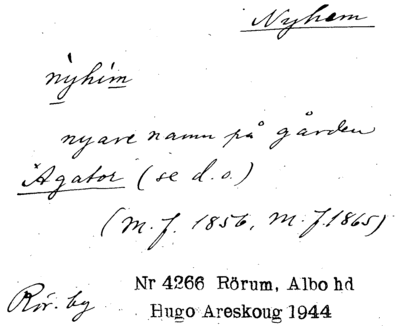 Nyhem
nỳhím
nyare namn på gården
*Agator (se d.o.)
(m.f. 1856, m.f. 1865)
Nr 4266 Rörum, Albo hd
Rör. by
Hugo Areskoug 1944